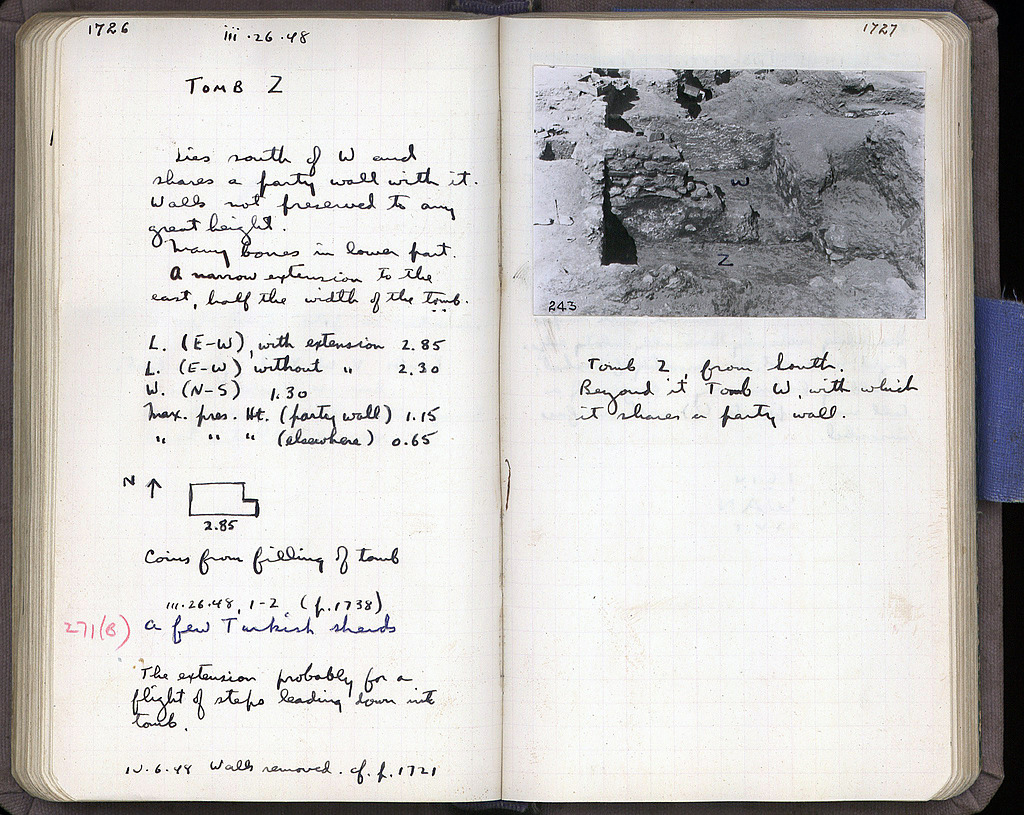 1726
iii·26·48
TOMB Z
Lies south of W and
shares a party wall with it.
Walls not preserved to any
great height.
Many bones in lower part.
A narrow extension to the
east, half the width of the tomb.
L. (E-W), with extension 2.85
L. (E-W) without " 2.30
W. (N-S) 1.30
Max. pres. Ht. (party wall) 1.15
" " " (elsewhere) 0.65
N
2.85
Coins from filling of tomb
iii·26·48, 1-2 (p.1738)
271(B) a few Turkish sherds
The extension probably for a
flight of steps leading down into
tomb.
iv·6·48 Walls removed. cf. p. 1721
1727
W
Z
243
Tomb Z from South.
Beyond it Tomb W, with which
it shares a party wall.